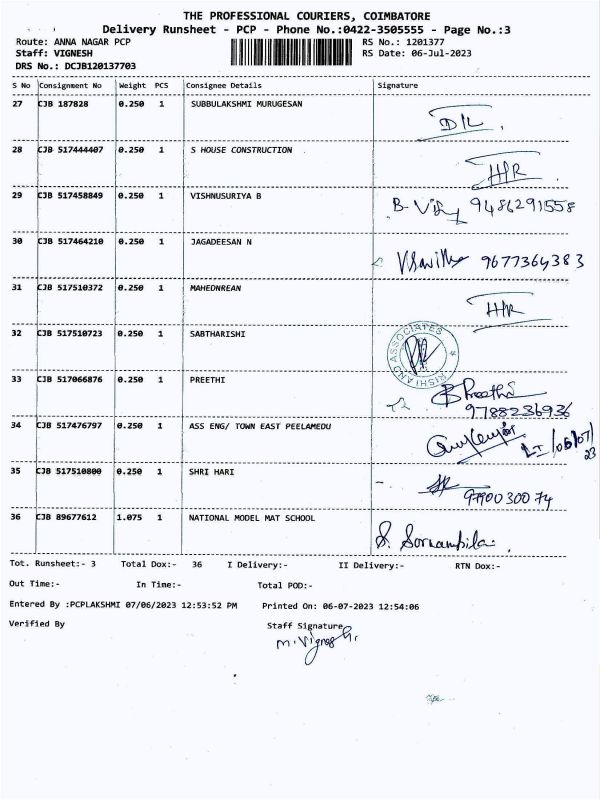 THE PROFESSIONAL COURIERS, COIMBATORE
Delivery Runsheet - PCP - Phone No.:0422-3505555 - Page No.:3
Route: ANNA NAGAR PCP RS No.: 1201377
Staff: VIGNESH RS Date: 06-Jul-2023
DRS No.: DCJB120137703
S No Consignment No Weight PCS Consignee Details Signature
27 CJB 187828 0.250 1 SUBBULAKSHMI MURUGESAN D/L
28 CJB 517444407 0.250 1 S HOUSE CONSTRUCTION H/R
29 CJB 517458849 0.250 1 VISHNUSURIYA B 9486291558
30 CJB 517464210 0.250 1 JAGADEESAN N 9677364383
31 CJB 517510372 0.250 1 MAHEDNREAN H/R
32 CJB 517510723 0.250 1 SABTHARISHI RISHI AND ASSOCIATES
33 CJB 517066876 0.250 1 PREETHI Preethi
9788236936
34 CJB 517476797 0.250 1 ASS ENG/ TOWN EAST PEELAMEDU
35 CJB 517510800 0.250 1 SHRI HARI 9790030074
36 CJB 89677612 1.075 1 NATIONAL MODEL MAT SCHOOL
Tot. Runsheet:- 3 Total Dox:- 36 I Delivery:- II Delivery:- RTN Dox:-
Out Time:- In Time:- Total POD:-
Entered By :PCPLAKSHMI 07/06/2023 12:53:52 PM Printed On: 06-07-2023 12:54:06
Verified By Staff Signature